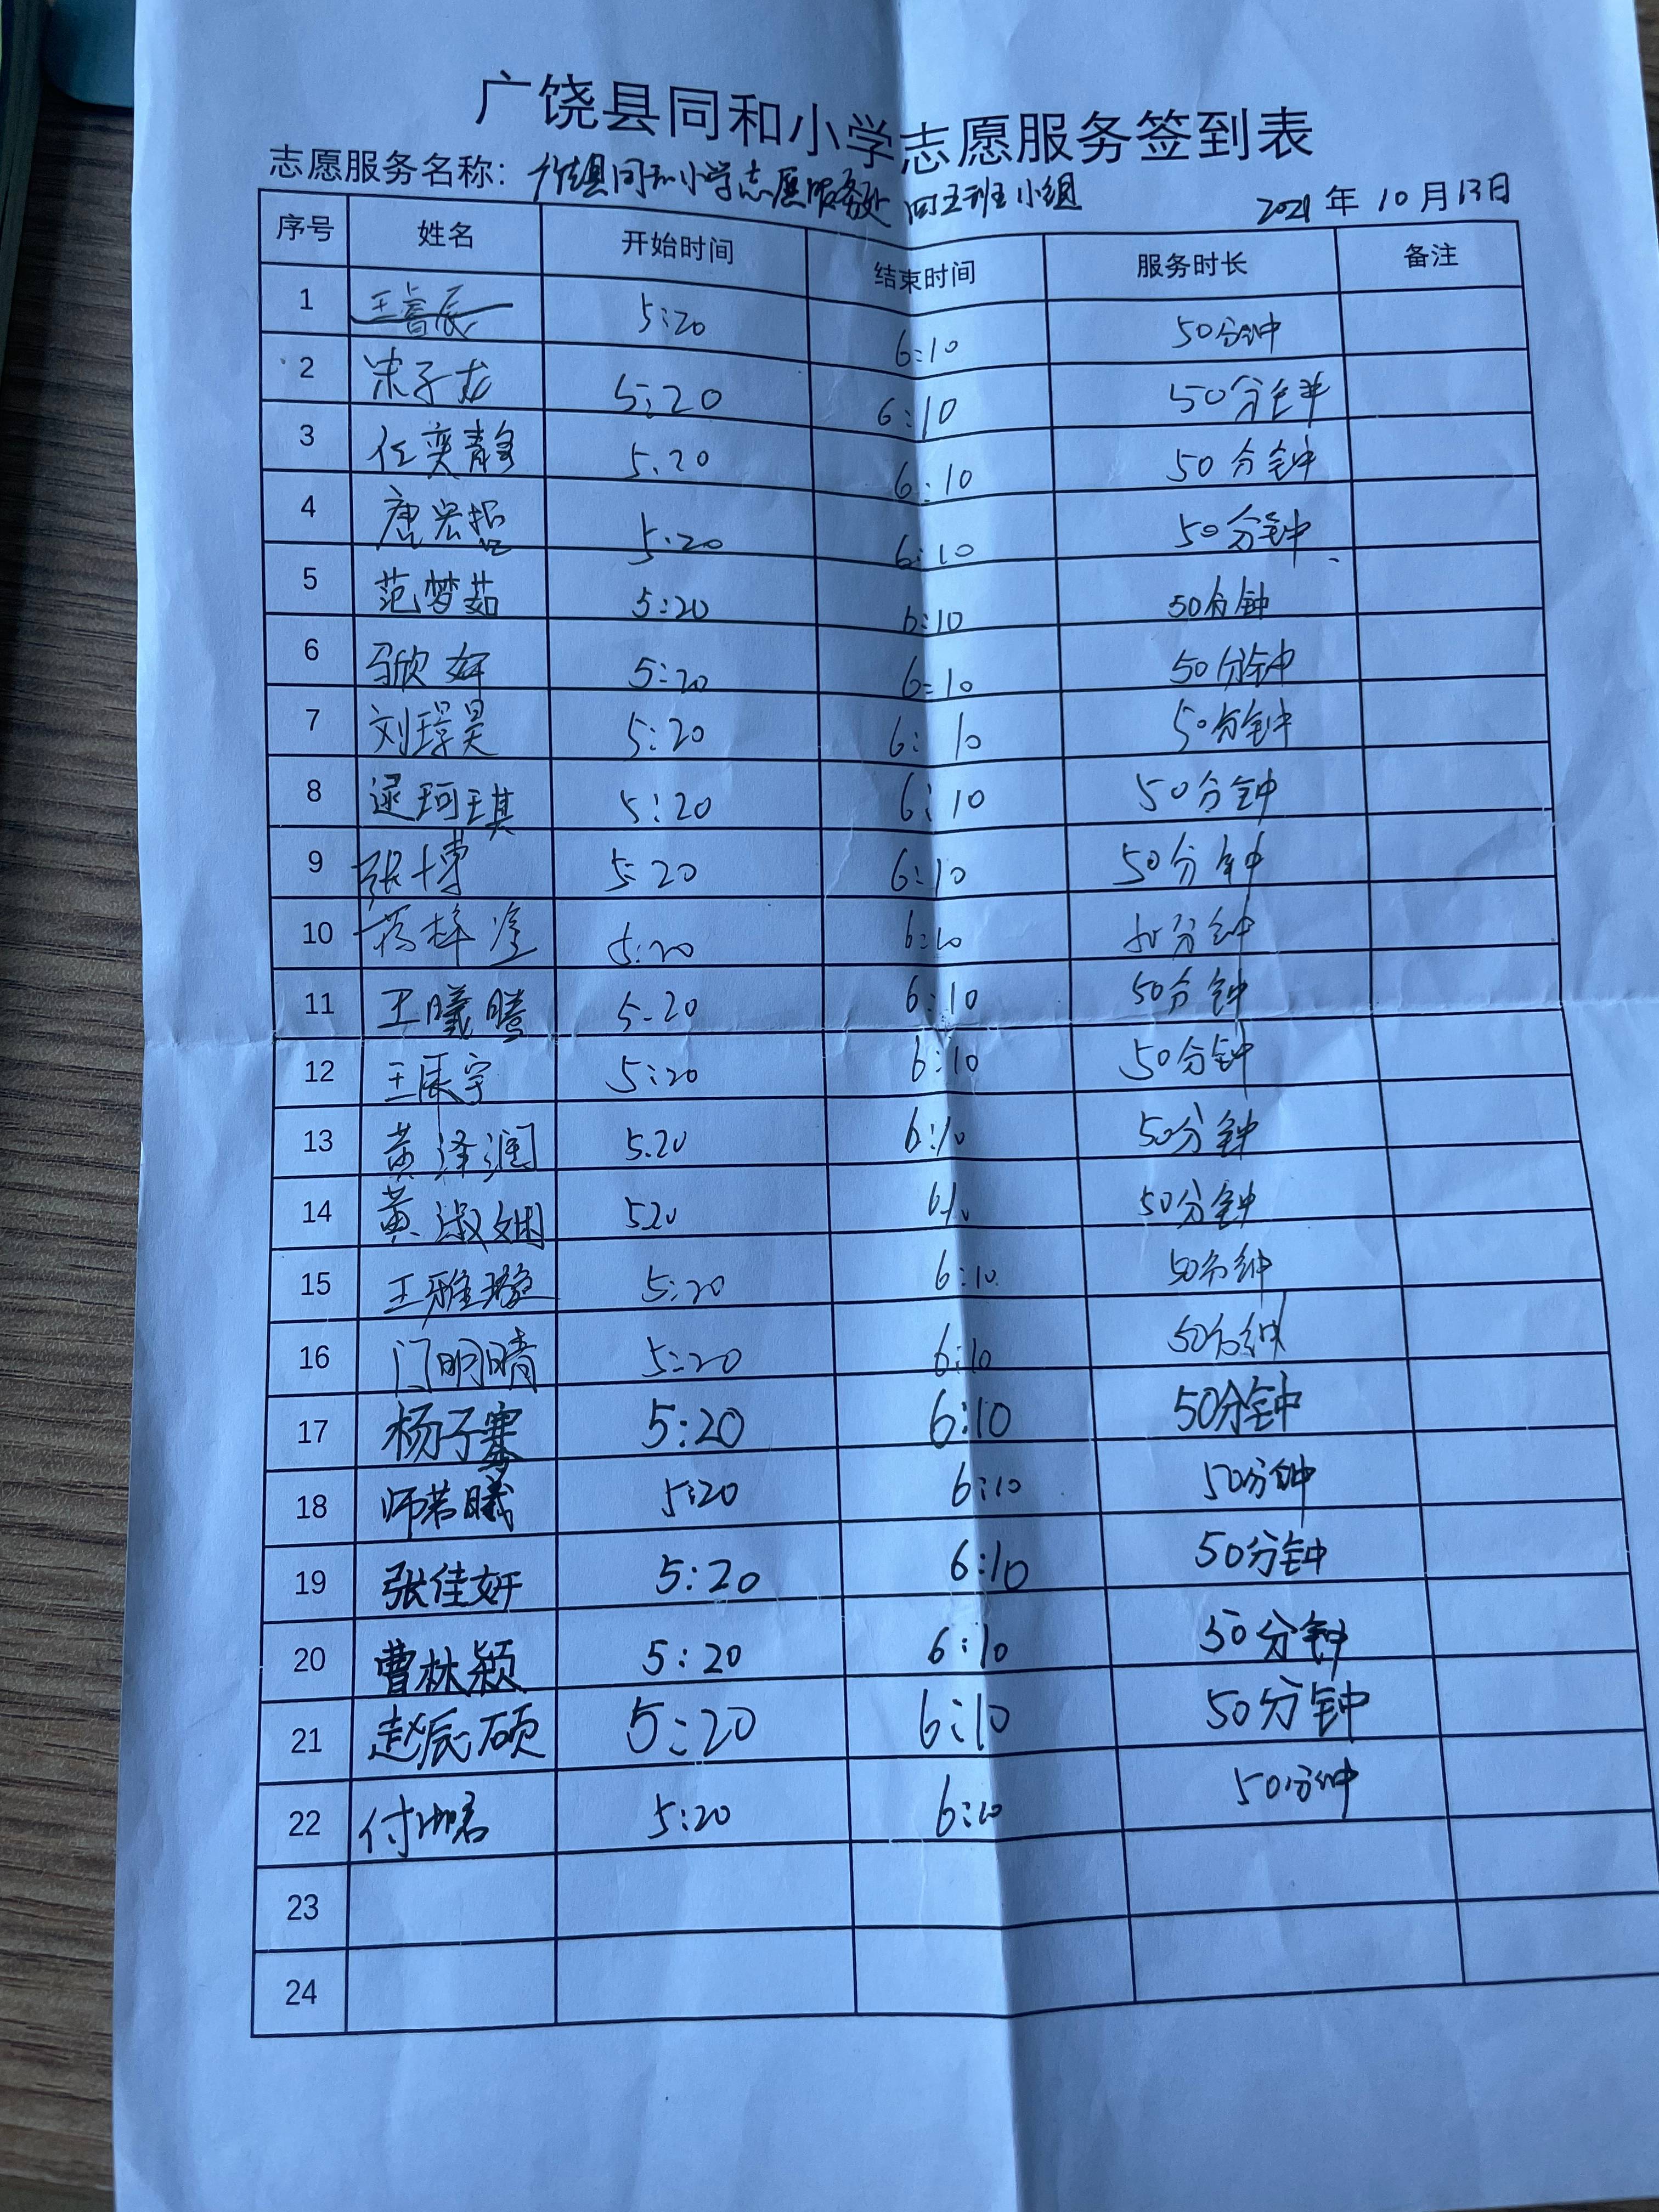 广饶县同和小学志愿服务签到表
志愿服务名称：广饶县同和小学志愿服务处四五班小组 2021年10月13日
序号 姓名 开始时间 结束时间 服务时长 备注
1 王睿辰 5:20 6:10 50分钟
2 宋子龙 5:20 6:10 50分钟
3 任奕静 5:20 6:10 50分钟
4 唐宏哲 5:20 6:10 50分钟
5 范梦茹 5:20 6:10 50分钟
6 马欣妍 5:20 6:10 50分钟
7 刘璟昊 5:20 6:10 50分钟
8 逯珂琪 5:20 6:10 50分钟
9 张博 5:20 6:10 50分钟
10 5:20 6:10 50分钟
11 王曦腾 5:20 6:10 50分钟
12 王辰宇 5:20 6:10 50分钟
13 黄泽润 5.20 6:10 50分钟
14 黄淑娴 520 6:10 50分钟
15 王雅璇 5:20 6:10 50分钟
16 门明晴 5:20 6:10 50分钟
17 杨子骞 5:20 6:10 50分钟
18 师若曦 5:20 6:10 50分钟
19 张佳妍 5:20 6:10 50分钟
20 曹林颖 5:20 6:10 50分钟
21 赵辰硕 5:20 6:10 50分钟
22 5:20 6:10 50分钟
23
24